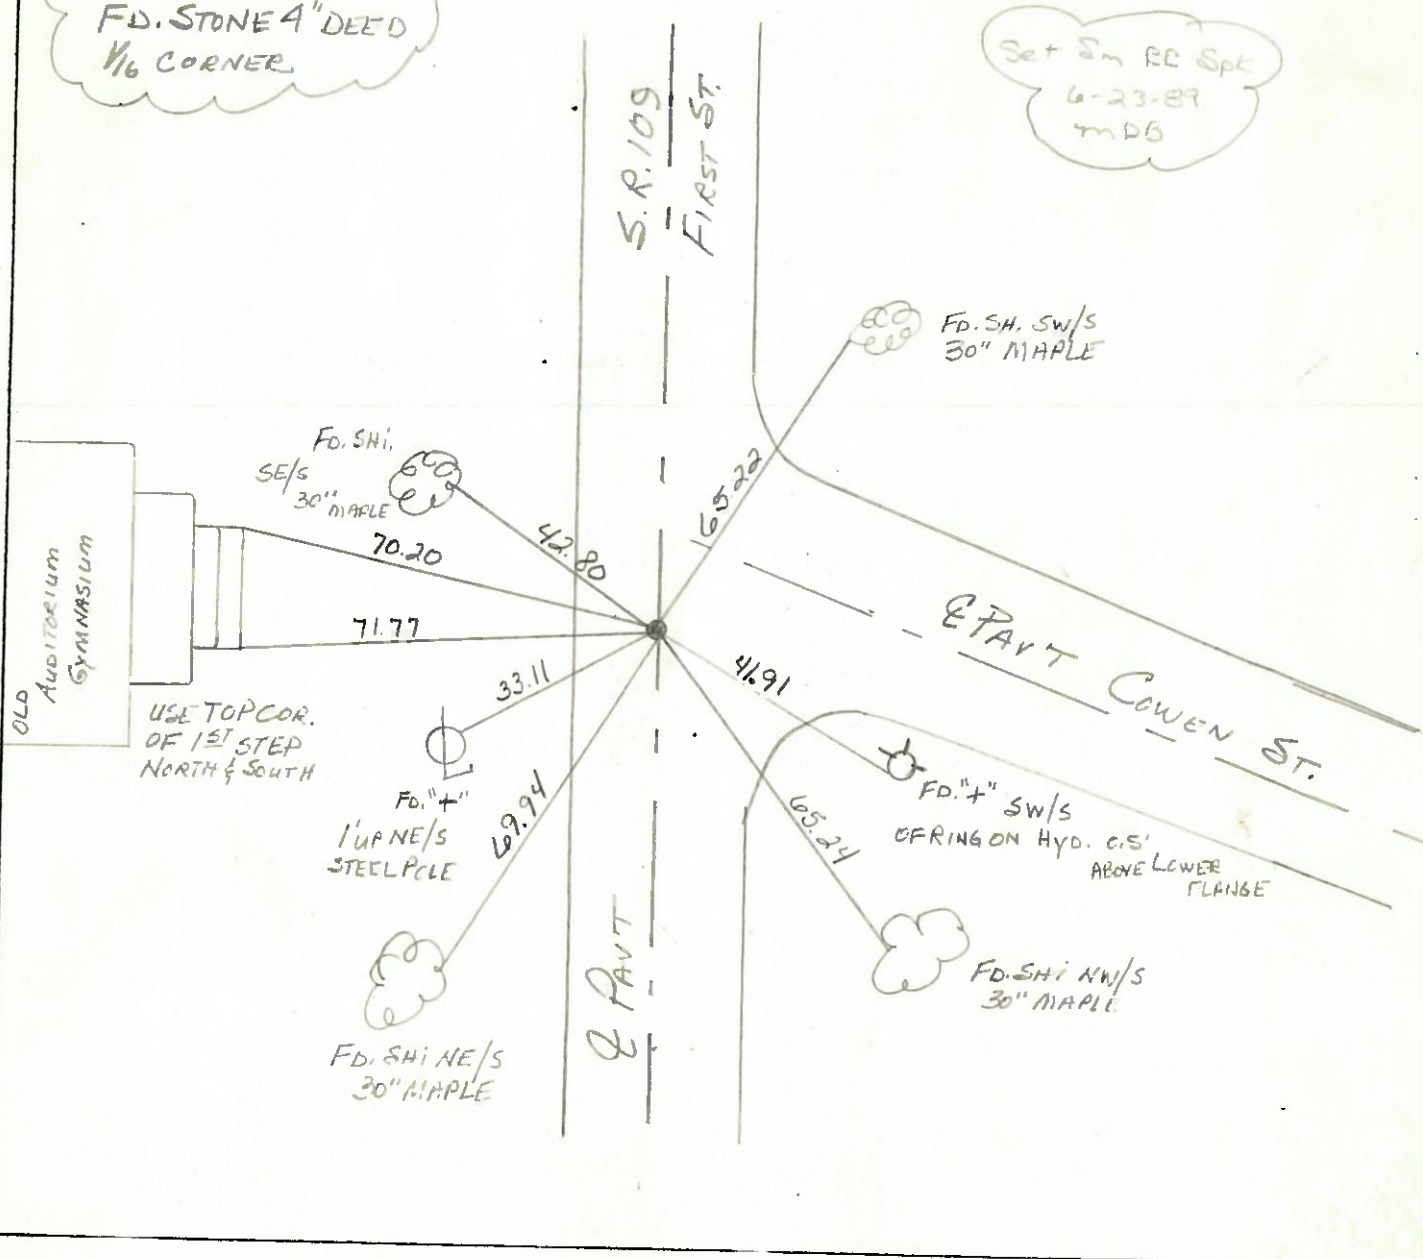 FD. STONE 4" DEED
1/16 CORNER
Set Sm RR Spk
6-23-89
MDB
S.R. 109
FIRST ST.
FD. SH. SW/S
30" MAPLE
FD. SHi.
SE/S
30" MAPLE
65.22
42.80
70.20
71.77
33.11
41.91
69.94
65.24
OLD
AUDITORIUM
GYMNASIUM
USE TOP COR.
OF 1ST STEP
NORTH & SOUTH
℄ PAVT COWEN ST.
FD. "+"
1' UP NE/S
STEEL POLE
FD. "+" SW/S
OF RING ON HYD. 0.5'
ABOVE LOWER
FLANGE
℄ PAVT
FD. SHi NW/S
30" MAPLE
FD. SHi NE/S
30" MAPLE